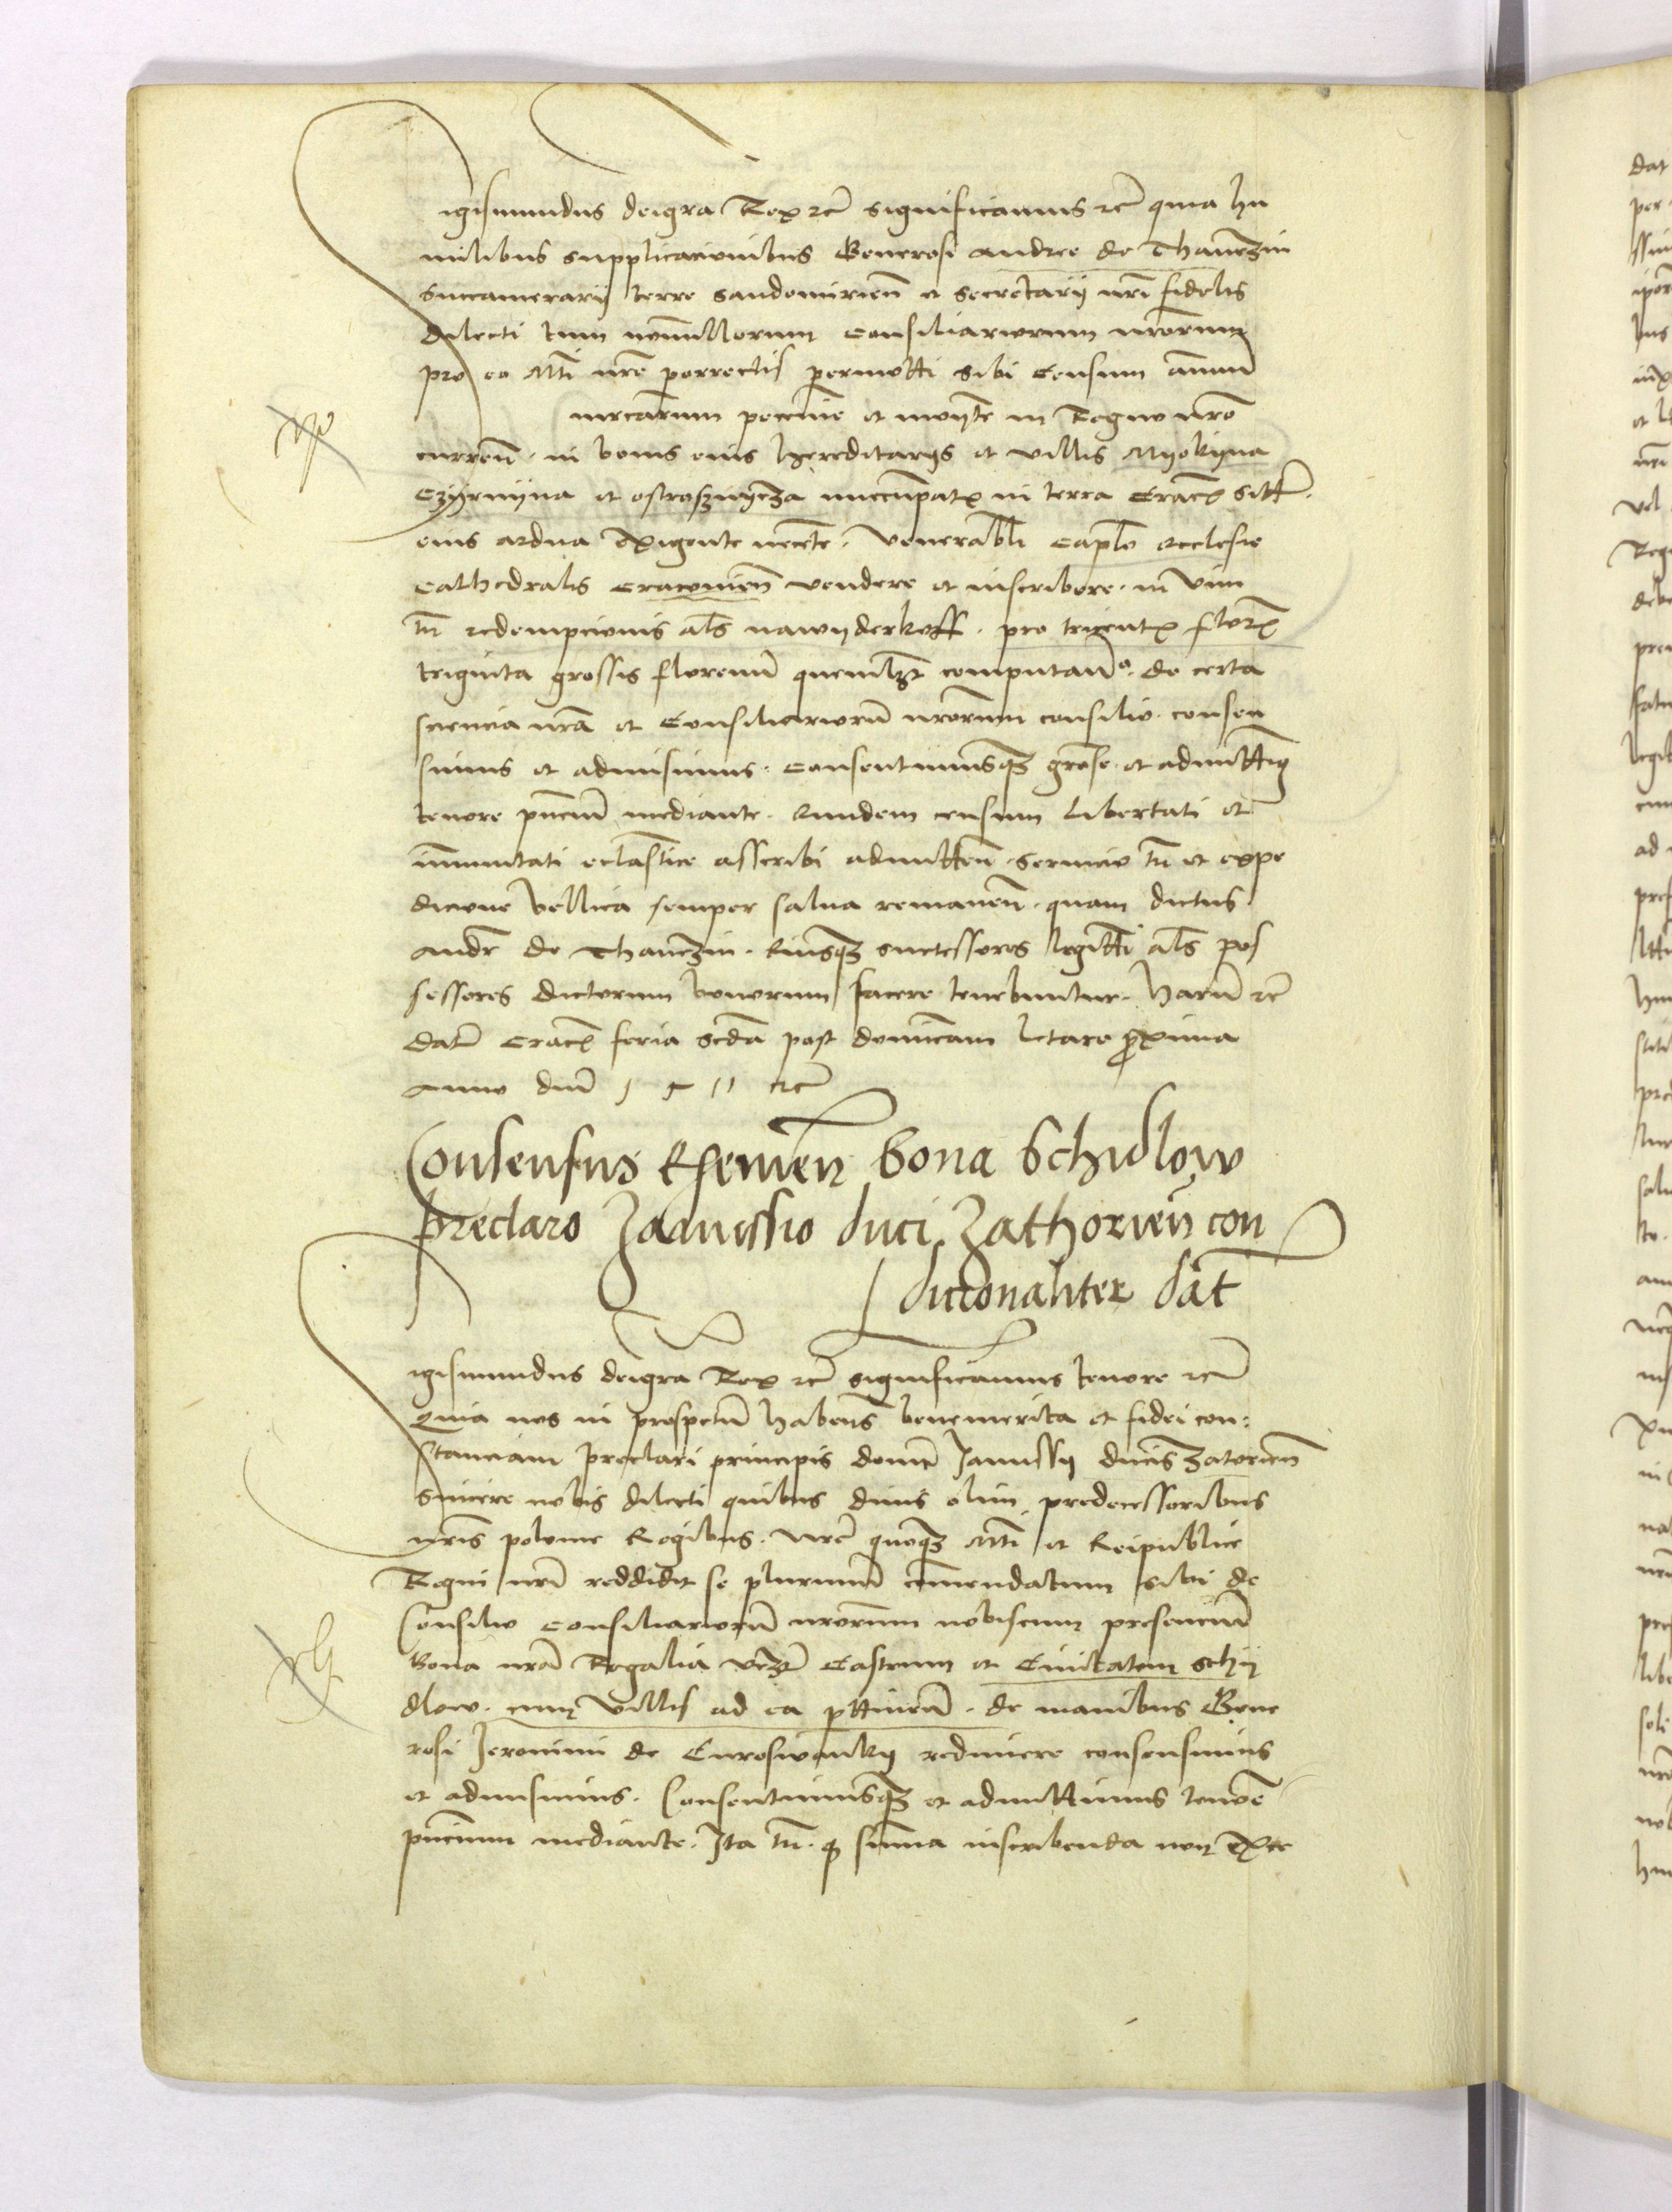 igismundus deigra Rex rc̄ significamus rc̄ quia hu
milibus supplicacionibus Generosi Andree de Thanczin
Succamerarij terre Sandomirien̄ et Secretarij nr̄i fidelis
dilecti tum nōnullorum Consiliariorum nr̄orum
pro eo Mti nr̄e porrectis permotti sibi Censum annuū
mrcarum peccunie et monete in Regno nr̄o
curren̄. in bonis eius hereditarijs et villis Myokyna
Czyrnyna et ostrosznycza nuccupat in terra Crac̄ sitt̄.
eius ardua exigente necc̄te. Venerabli Caplo Ecclesie
Cathedralis Cracouien̄ vendere et inscribere. in vim
tn̄ redempcionis als̄ nawyderkoff. pro trigenta floren̄
triginta grossis florenū quemlz̄t computan̄o. de certa
sciencia nr̄a et Consiliariorū nr̄orum consilio. consen
simus et admisimus. Consentimusqz grōse. et admittim9
tenore pn̄ciū mediante. Eundem censum Libertati et
īmunitati ecclas̄tice asscribi admitten̄. seruicio tn̄ et expe
dicione bellica semper salua remanen̄. quam dictus
Andr̄ de Thanczin. Eiusqz successores legitti als̄ pos
sessores dictorum bonorum facere tenebuntur. Harū rc̄
Datum Crac̄ feria scd̄a post dominicam letare proxima
Anno dnī 1511 rc̄
Consensus Exemen̄ bona Schidlow
preclaro Janussio duci Zathorien̄ con
dicionaliter dat̄
igismundus deigra Rex rc̄ significamus tenore rc̄
Quia nos in prospectū haben̄s benemerita et fidei con:
stanciam preclari principis domī Janussij ducis Zatorien̄
sincere nobis dilecti quibus diuis olim predecessoribus
nr̄is polonie Regibus. nr̄e quoqz Mti et Reipublice
Regni nr̄i reddidit se plurimū cōmendatum sibi de
Consilio Consiliariorū nr̄orum nobiscum presenciū
Bona nr̄a Regalia vcz̄t Castrum et Ciuitatem schy
dlow. cum villis ad ea pttinen̄. de manibus Gene
rosi Jeronimi de Curoszwanky redimere consensimus
et admisimus. Consentimusqz et admittimus tenore
pn̄cium mediante. Ita tn̄. q̄ sum̄a inscribenda non Exce